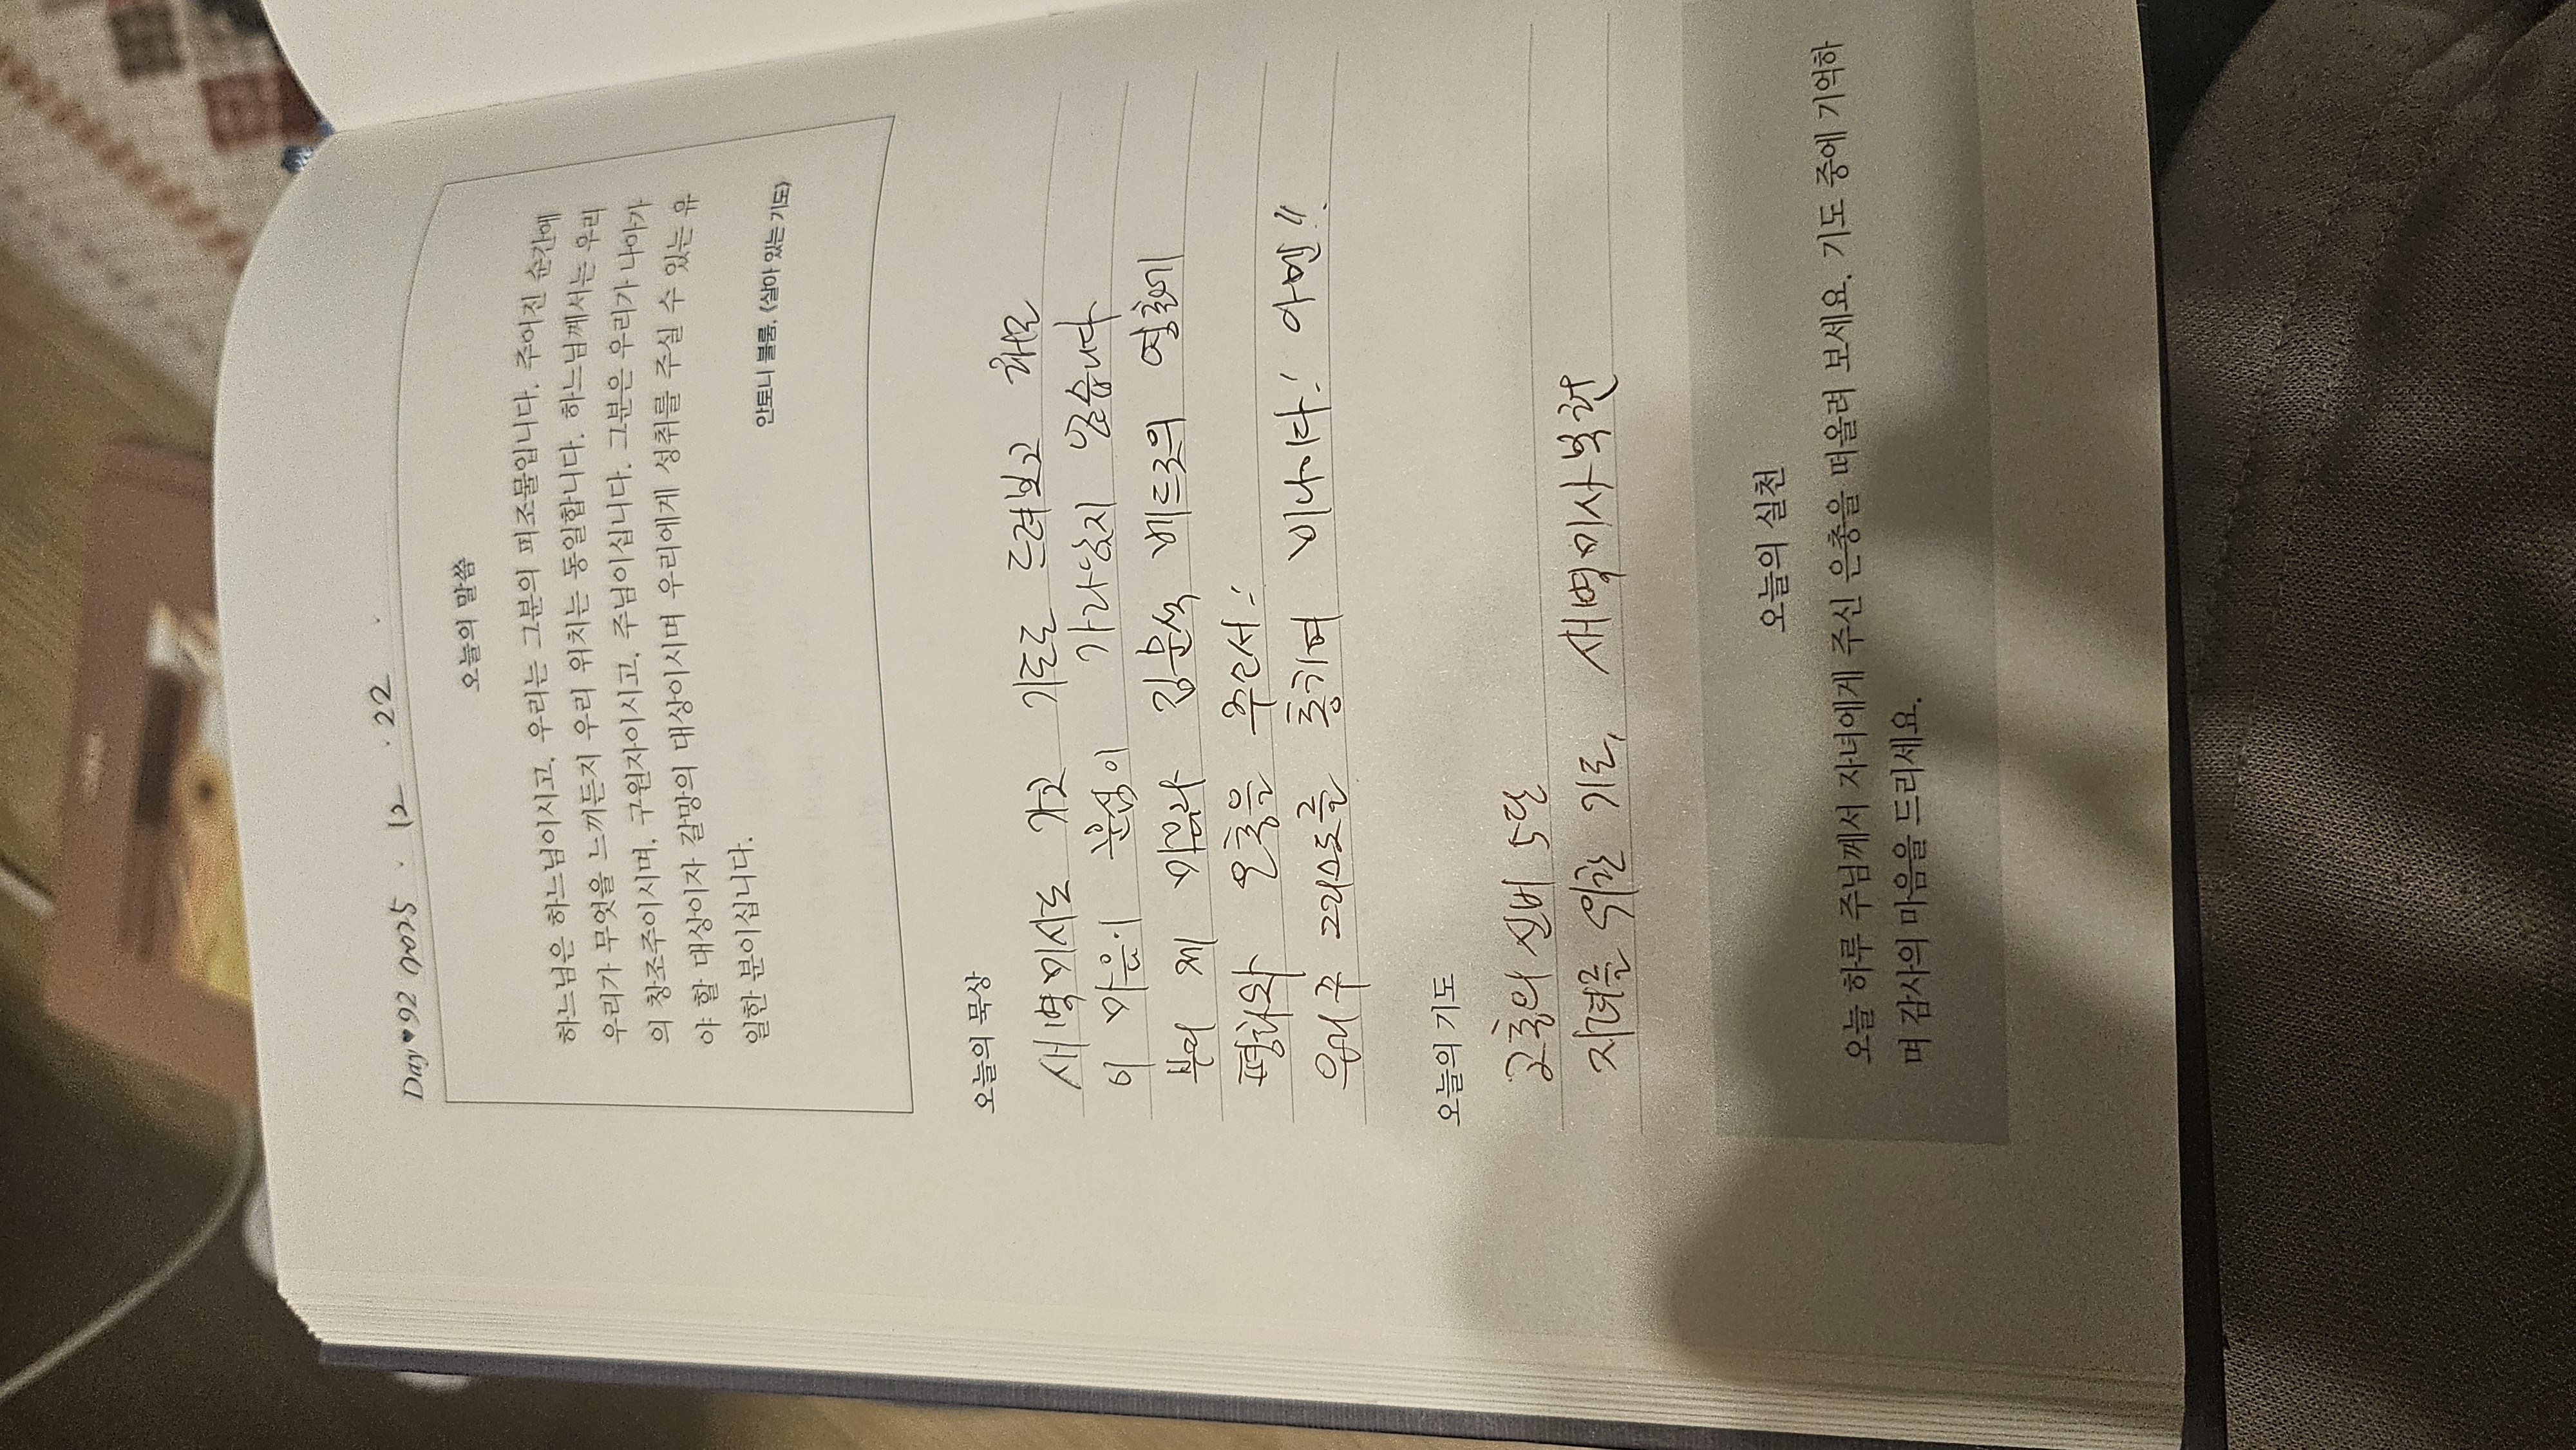 Day♥92 2025 . 12 . 22 .
오늘의 말씀
하느님은 하느님이시고, 우리는 그분의 피조물입니다. 주어진 순간에
우리가 무엇을 느끼든지 우리 위치는 동일합니다. 하느님께서는 우리
의 창조주이시며, 구원자이시고, 주님이십니다. 그분은 우리가 나아가
야 할 대상이자 갈망의 대상이시며 우리에게 성취를 주실 수 있는 유
일한 분이십니다.
안토니 블룸, 《살아 있는 기도》
오늘의 묵상
새벽미사도 가고 기도도 드려보고 해도
이 마음의 분심이 가라앉지 않습니다
부디 제 마음과 김문석 베드로의 영혼에
평화와 은총을 주소서!
우리 주 그리스도를 통하여 비나이다! 아멘!!
오늘의 기도
고통의 신비 5단
자녀를 위한 기도, 새벽미사봉헌
오늘의 실천
오늘 하루 주님께서 자녀에게 주신 은총을 떠올려 보세요. 기도 중에 기억하
며 감사의 마음을 드리세요.